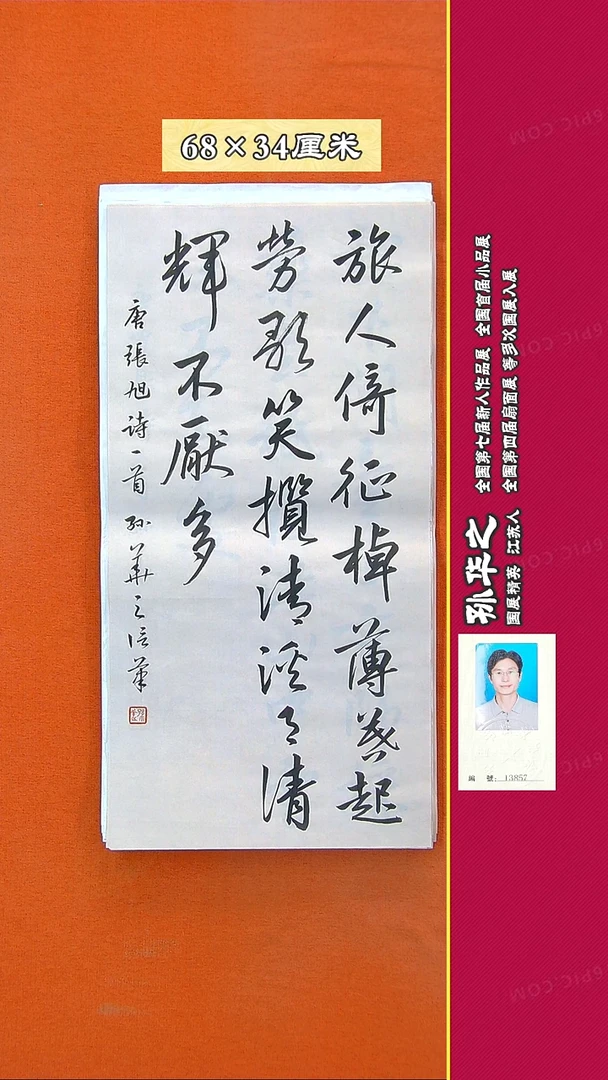 68×34厘米
旅人倚征棹薄暮起
勞歌笑攬清溪月清
輝不厭多
唐張旭詩一首 孙華之信筆
孙华之
国展精英 江苏人
全国第七届新人作品展 全国首届小品展
全国第四届扇面展 等多次国展入展
編 號: 13857